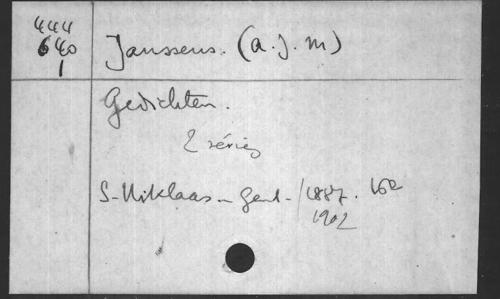 444
640
1
Janssens. (a. j. m)
Gedichten.
2 séries
S-Niklaas - Gent - 1887.
1902